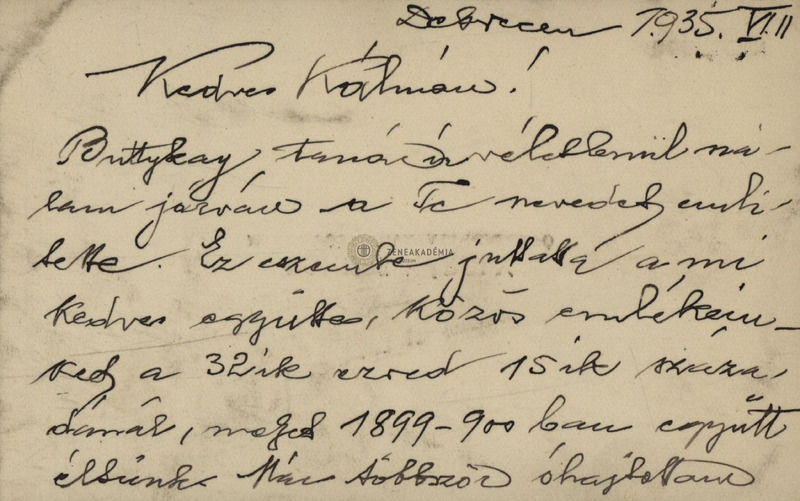 Debrecen 1935. VI. 11
Kedves Kálmán!
Buttykay tanár úr véletlenül ná-
lam járván a Te nevedet emlí-
tette. Ez eszembe juttatta a mi
kedves együttes, közös emlékein-
ket a 32ik ezred 15ik száza-
dánál, melyet 1899-900 ban együtt
éltünk. Már többször óhajtottam
ZENEAKADÉMIA